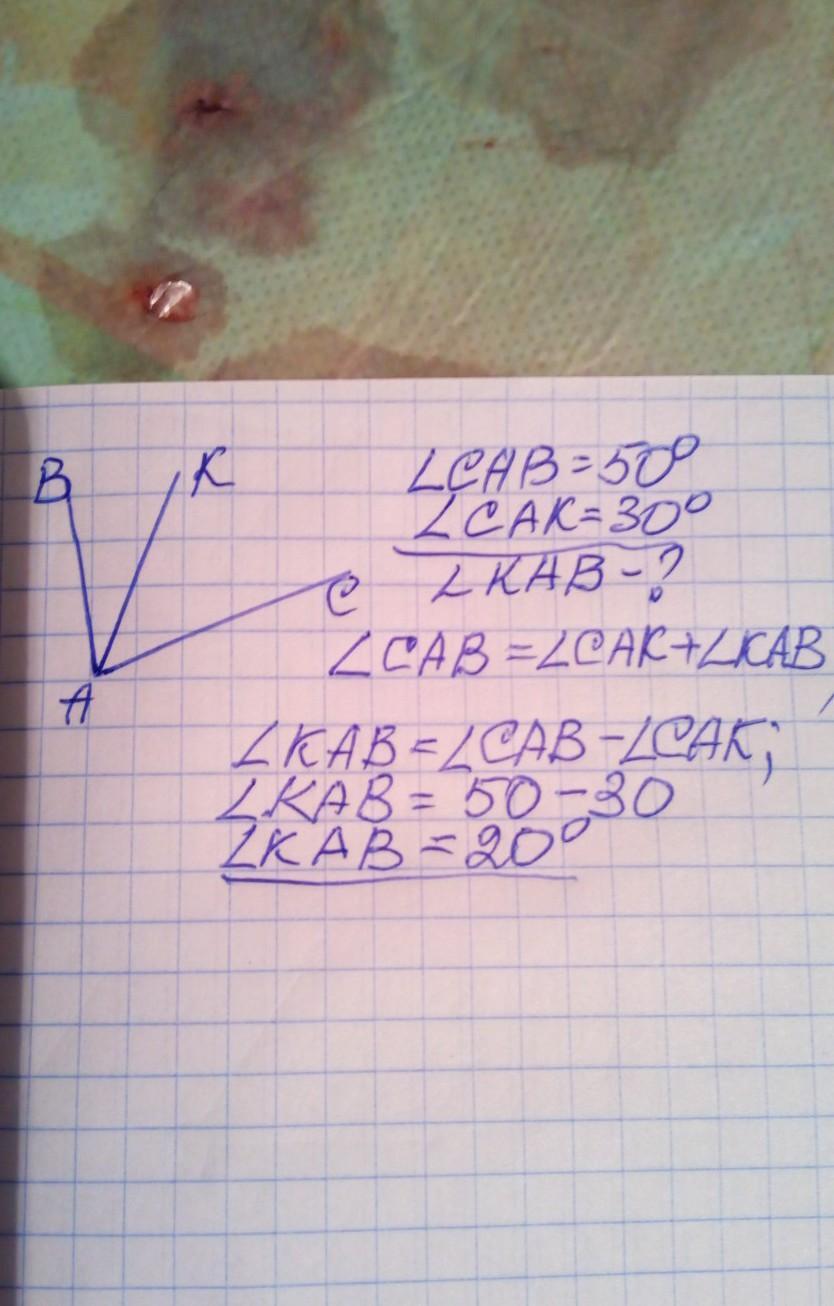 B
K
C
A
∠CAB=50°
∠CAK=30°
∠KAB-?
∠CAB=∠CAK+∠KAB,
∠KAB=∠CAB-∠CAK;
∠KAB= 50-30
∠KAB=20°